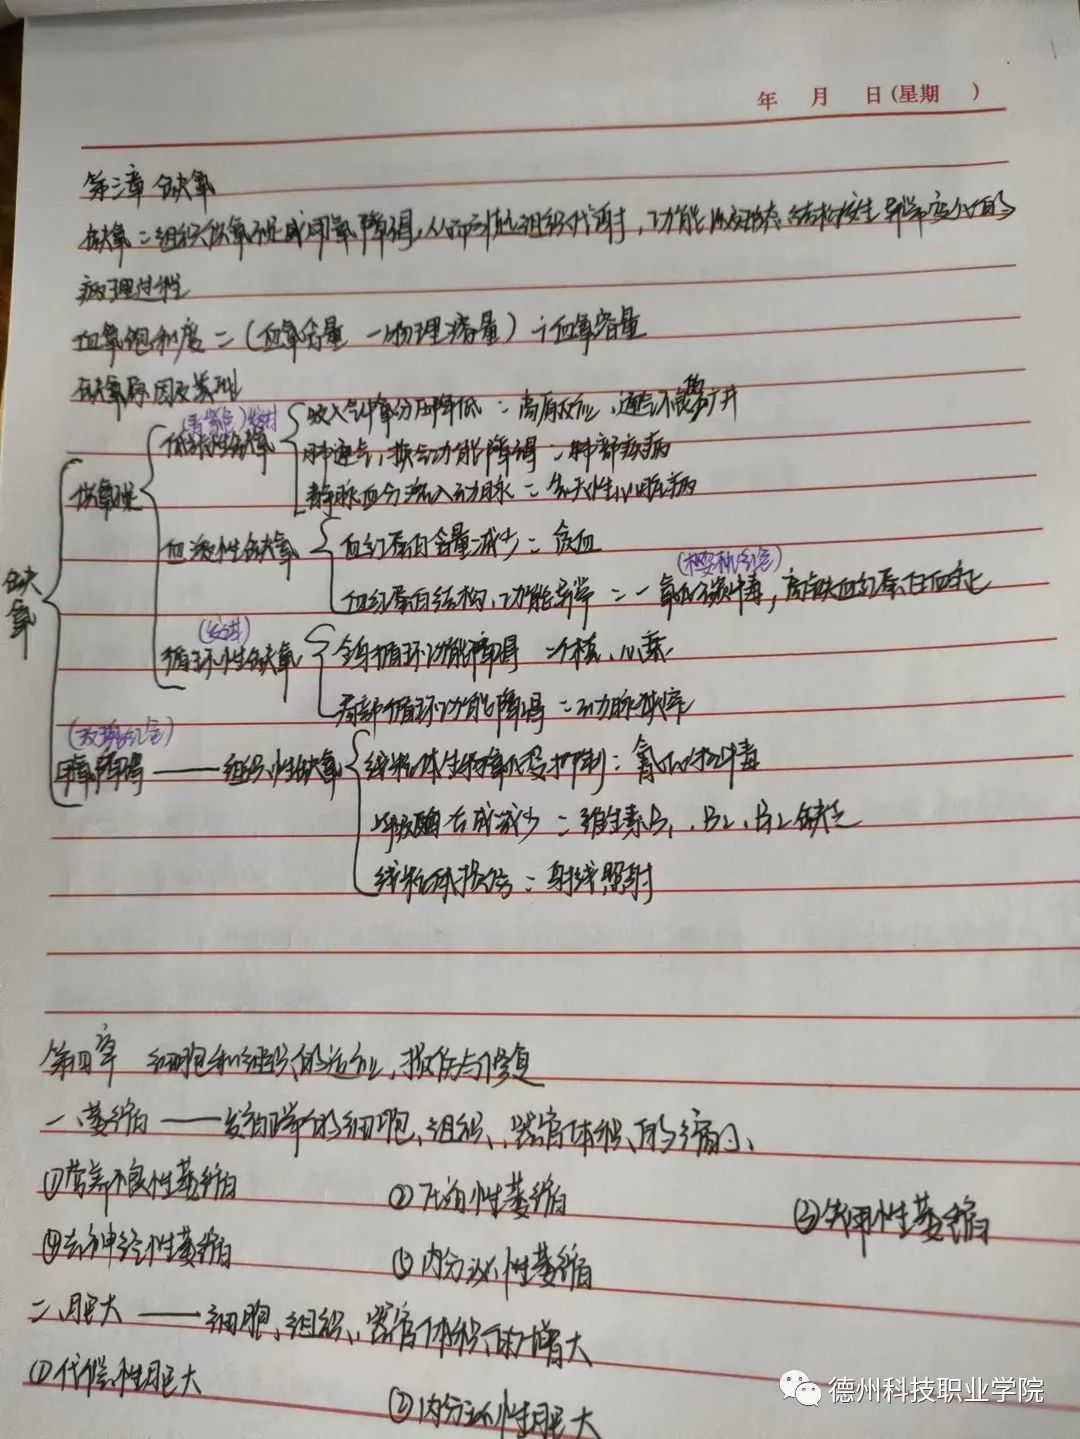 年 月 日(星期 )
第三章 缺氧
缺氧:组织供氧不足或用氧障碍,从而引起组织代谢,功能以及形态、结构发生异常变化的
病理过程
血氧饱和度=(血氧含量-物理溶量)÷血氧容量
缺氧原因及类型
(青紫色) 发绀
低张性缺氧
吸入气体氧分压降低:高原反应、通气不良矿井
肺通气,换气功能障碍:肺部疾病
静脉血分流入动脉:先天性心脏病
供氧不足
血液性缺氧
血红蛋白含量减少:贫血
(樱桃红色)
血红蛋白结构、功能异常:一氧化碳中毒,高铁血红蛋白血症
缺氧
(发绀)
循环性缺氧
全身循环功能障碍 休克、心衰
局部循环功能障碍:动脉狭窄
(玫瑰红色)
用氧障碍——组织性缺氧
线粒体生物氧化受抑制:氰化物中毒
呼吸酶合成减少:维生素B1、B2、B12缺乏
线粒体损伤:射线照射
第四章 细胞和组织的适应,损伤与修复
一、萎缩——发育正常的细胞、组织、器官体积的缩小、
①营养不良性萎缩 ②压迫性萎缩 ③失用性萎缩
④去神经性萎缩 ⑤内分泌性萎缩
二、肥大——细胞、组织、器官体积的增大
①代偿性肥大 ②内分泌性肥大
德州科技职业学院